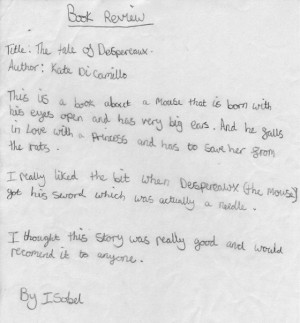 Book Review
Title: The tale of Despereaux.
Author: Kate DiCamillo
This is a book about a mouse that is born with
his eyes open and has very big ears. And he falls
in Love with a Princess and has to save her from
the rats.
I really liked the bit when Despereaux (the Mouse)
got his sword which was actually a needle.
I thought this story was really good and would
recomend it to anyone.
By Isobel